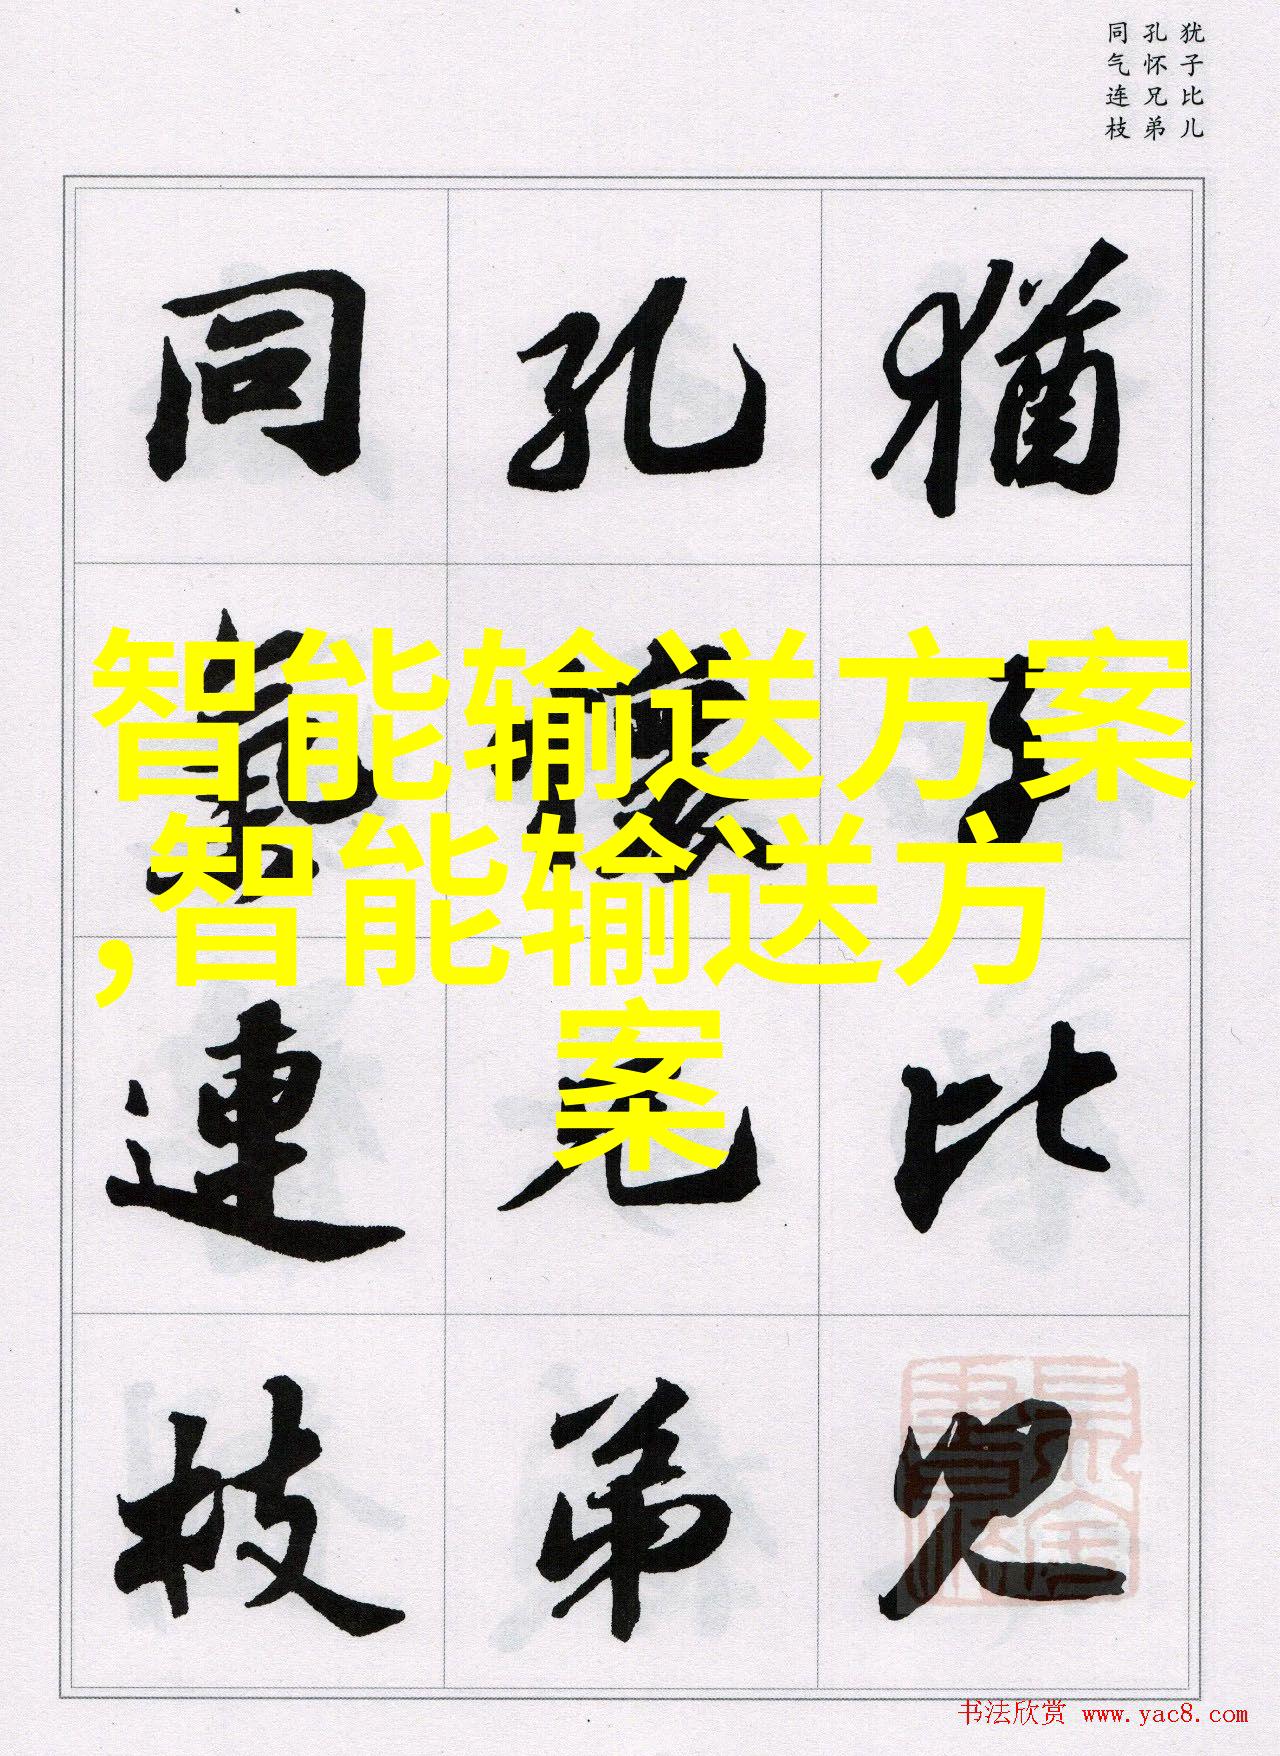 犹子比儿
孔怀兄弟
同气连枝
猶子比兒
孔懷兄弟
同氣連枝
智能输送方案
,智能输送方
案
书法欣赏 www.yac8.com